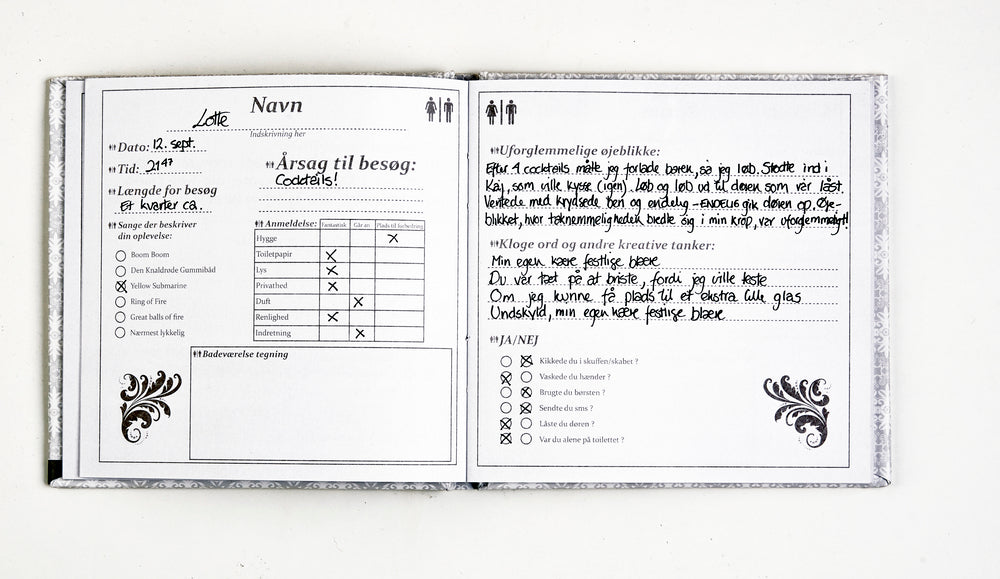 Navn
Lotte
Indskrivning her
Dato: 12. sept.
Tid: 21 47
Længde for besøg
Et kvarter ca.
Årsag til besøg:
Cocktails!
Sange der beskriver
din oplevelse:
Boom Boom
Den Knaldrøde Gummibåd
Yellow Submarine
Ring of Fire
Great balls of fire
Nærmest lykkelig
Anmeldelse: Fantastisk Går an Plads til forbedring
Hygge
Toiletpapir
Lys
Privathed
Duft
Renlighed
Indretning
Badeværelse tegning
Uforglemmelige øjeblikke:
Efter 4 cocktails måtte jeg forlade baren, så jeg løb. Stødte ind i
Kaj, som ville kysse (igen). Løb og løb ud til døren som var låst.
Ventede med krydsede ben og endelig - ENDELIG gik døren op. Øje-
blikket, hvor taknemmeligheden bredte sig i min krop, var uforglemmeligt!
Kloge ord og andre kreative tanker:
Min egen kære festlige blære
Du var tæt på at briste, fordi jeg ville feste
Om jeg kunne få plads til et ekstra lille glas
Undskyld, min egen kære festlige blære
JA/NEJ
Kikkede du i skuffen/skabet ?
Vaskede du hænder ?
Brugte du børsten ?
Sendte du sms ?
Låste du døren ?
Var du alene på toilettet ?